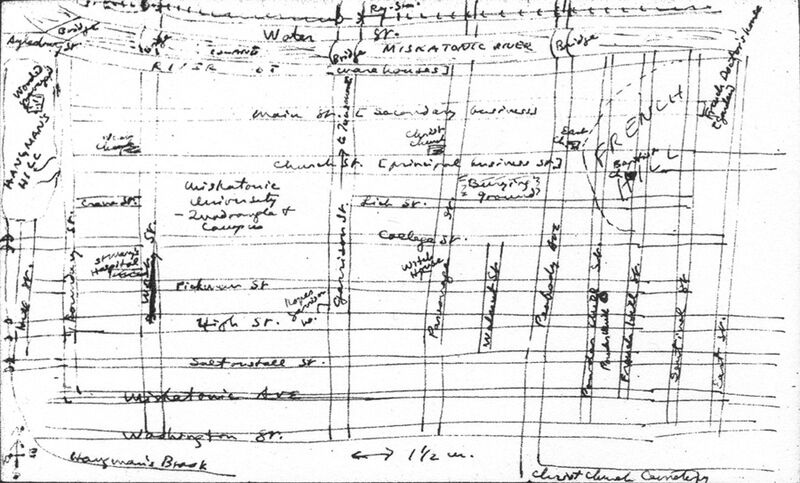 Water St.
Bridge
MISKATONIC RIVER
Bridge
Bridge
RIVER ST
[warehouses]
Main St. [Secondary business]
FRENCH
HILL
HANGMAN'S
HILL
Christ
Church
East
Ch.
Baptist
Ch.
Church St. [principal business St.]
Miskatonic
University
- Quadrangle &
Campus
Burying
ground
Crane St.
Lich St.
College St.
St. Mary's
Hospital
Witch
House
Pickman St
High St.
Saltonstall St.
Miskatonic Ave
Washington St.
Hill St.
Boundary St.
West St.
Garrison St.
Parsonage St.
Walnut St
Peabody Ave
French Hill St
Sentinel St
East St.
Hangman's Brook
1 1/2 m.
Christ Church Cemetery